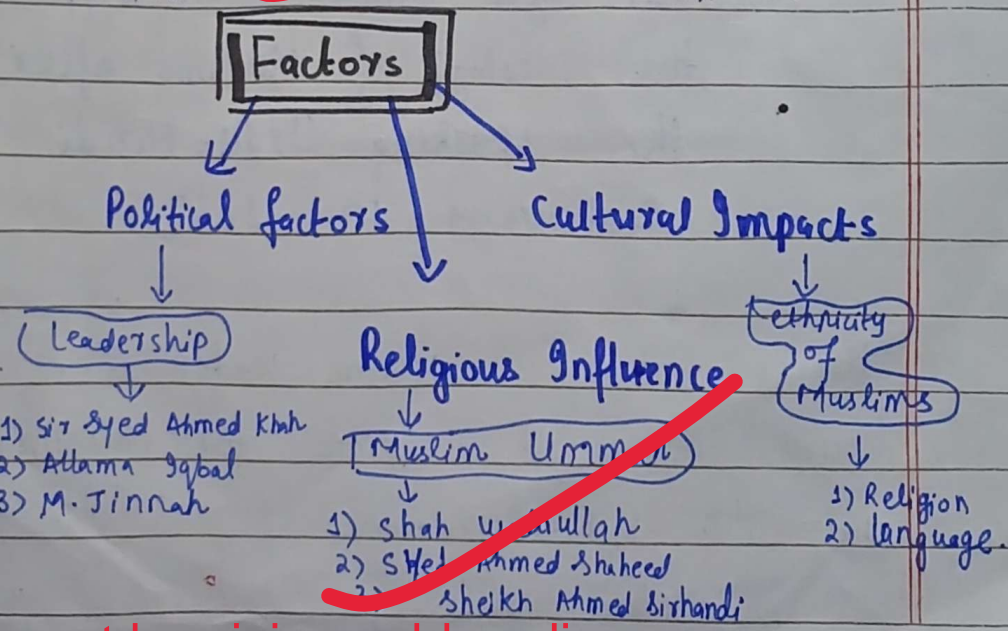 Factors
Political factors
Cultural Impacts
Leadership
1) Sir Syed Ahmed Khan
2) Allama Iqbal
3) M. Jinnah
Religious Influence
Muslim Ummah
1) Shah Waliullah
2) Syed Ahmed Shaheed
3) Sheikh Ahmed Sirhandi
ethnicity
of
Muslims
1) Religion
2) language.